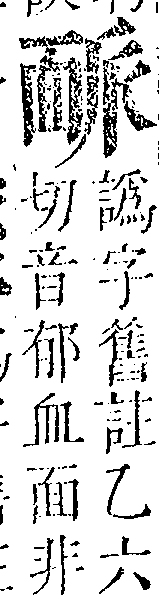 譌字舊註乙六
切音郁血面非